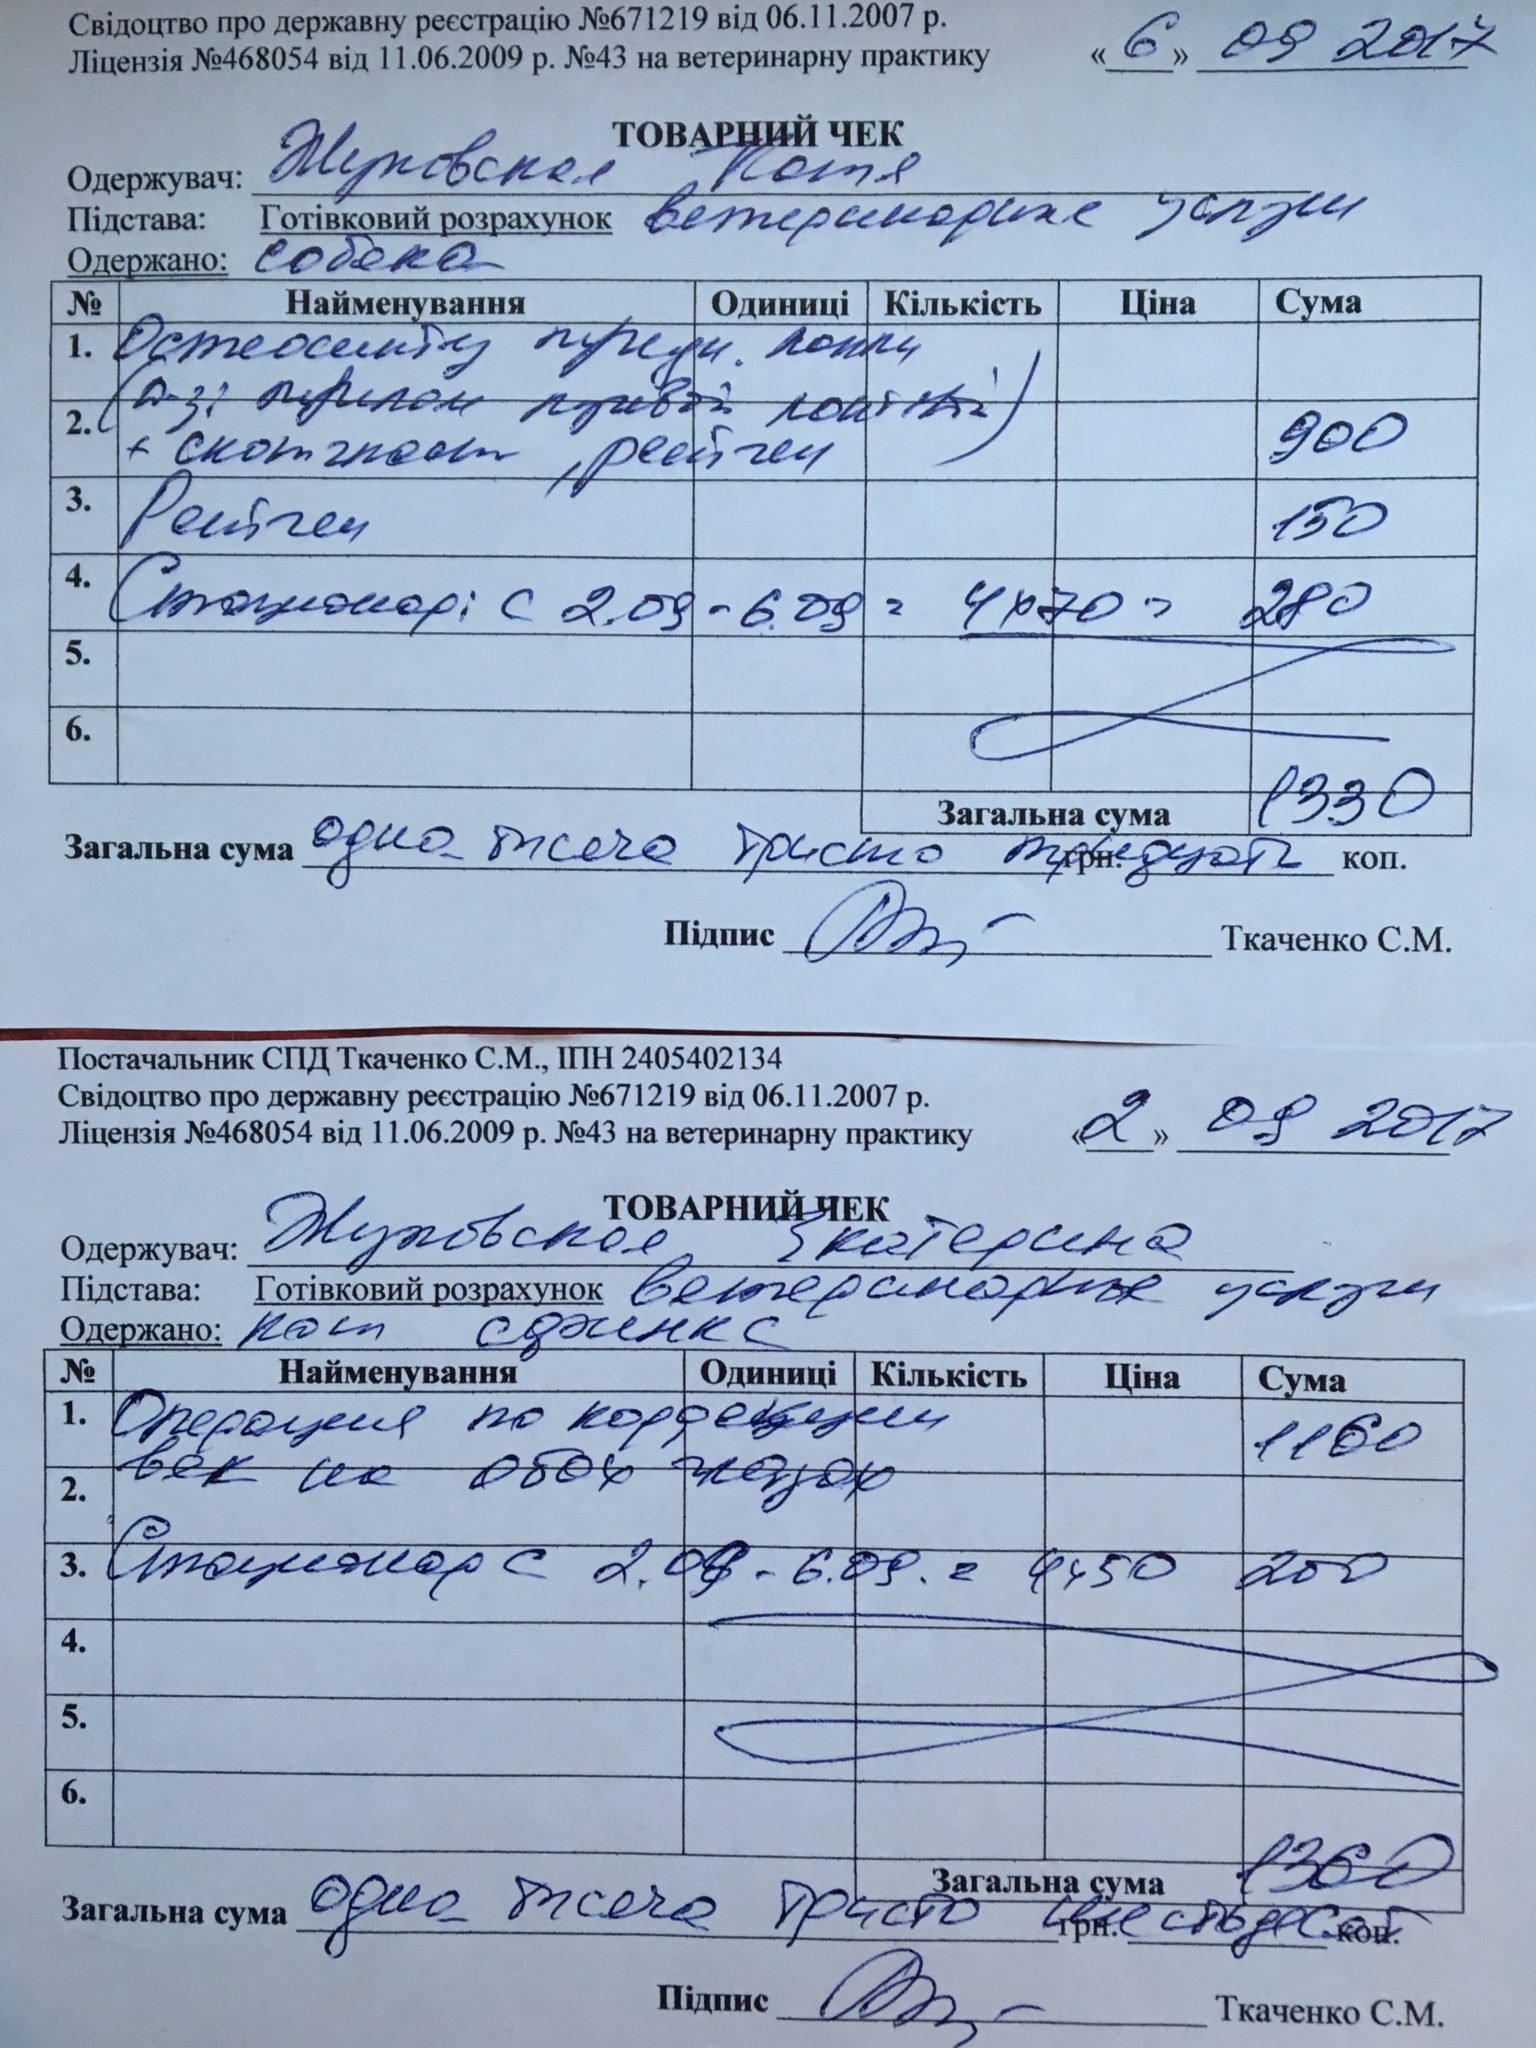 Свідоцтво про державну реєстрацію №671219 від 06.11.2007 р.
Ліцензія №468054 від 11.06.2009 р. №43 на ветеринарну практику «6» 09 2017
ТОВАРНИЙ ЧЕК
Одержувач: Жуковская Катя
Підстава: Готівковий розрахунок ветеринарные услуги
Одержано: собака
№ Найменування Одиниці Кількість Ціна Сума
1. Остеосинтез
2. 900
+ рентген
3. Рентген 150
4. Стационар: с 2.09 - 6.09 = 4х70 = 280
5.
6.
Загальна сума 1330
Загальна сума одна тисяча тристо тридцать грн. коп.
Підпис Ткаченко С.М.
Постачальник СПД Ткаченко С.М., ІПН 2405402134
Свідоцтво про державну реєстрацію №671219 від 06.11.2007 р.
Ліцензія №468054 від 11.06.2009 р. №43 на ветеринарну практику «2» 09 2017
ТОВАРНИЙ ЧЕК
Одержувач: Жуковская Екатерина
Підстава: Готівковий розрахунок ветеринарные услуги
Одержано: кот сфинкс
№ Найменування Одиниці Кількість Ціна Сума
1. Операция по коррекции 1160
век на обох глазах
2.
3. Стационар с 2.09 - 6.09. = 4х50 200
4.
5.
6.
Загальна сума 1360
Загальна сума одна тисяча тристо шестьдесят грн. коп.
Підпис Ткаченко С.М.